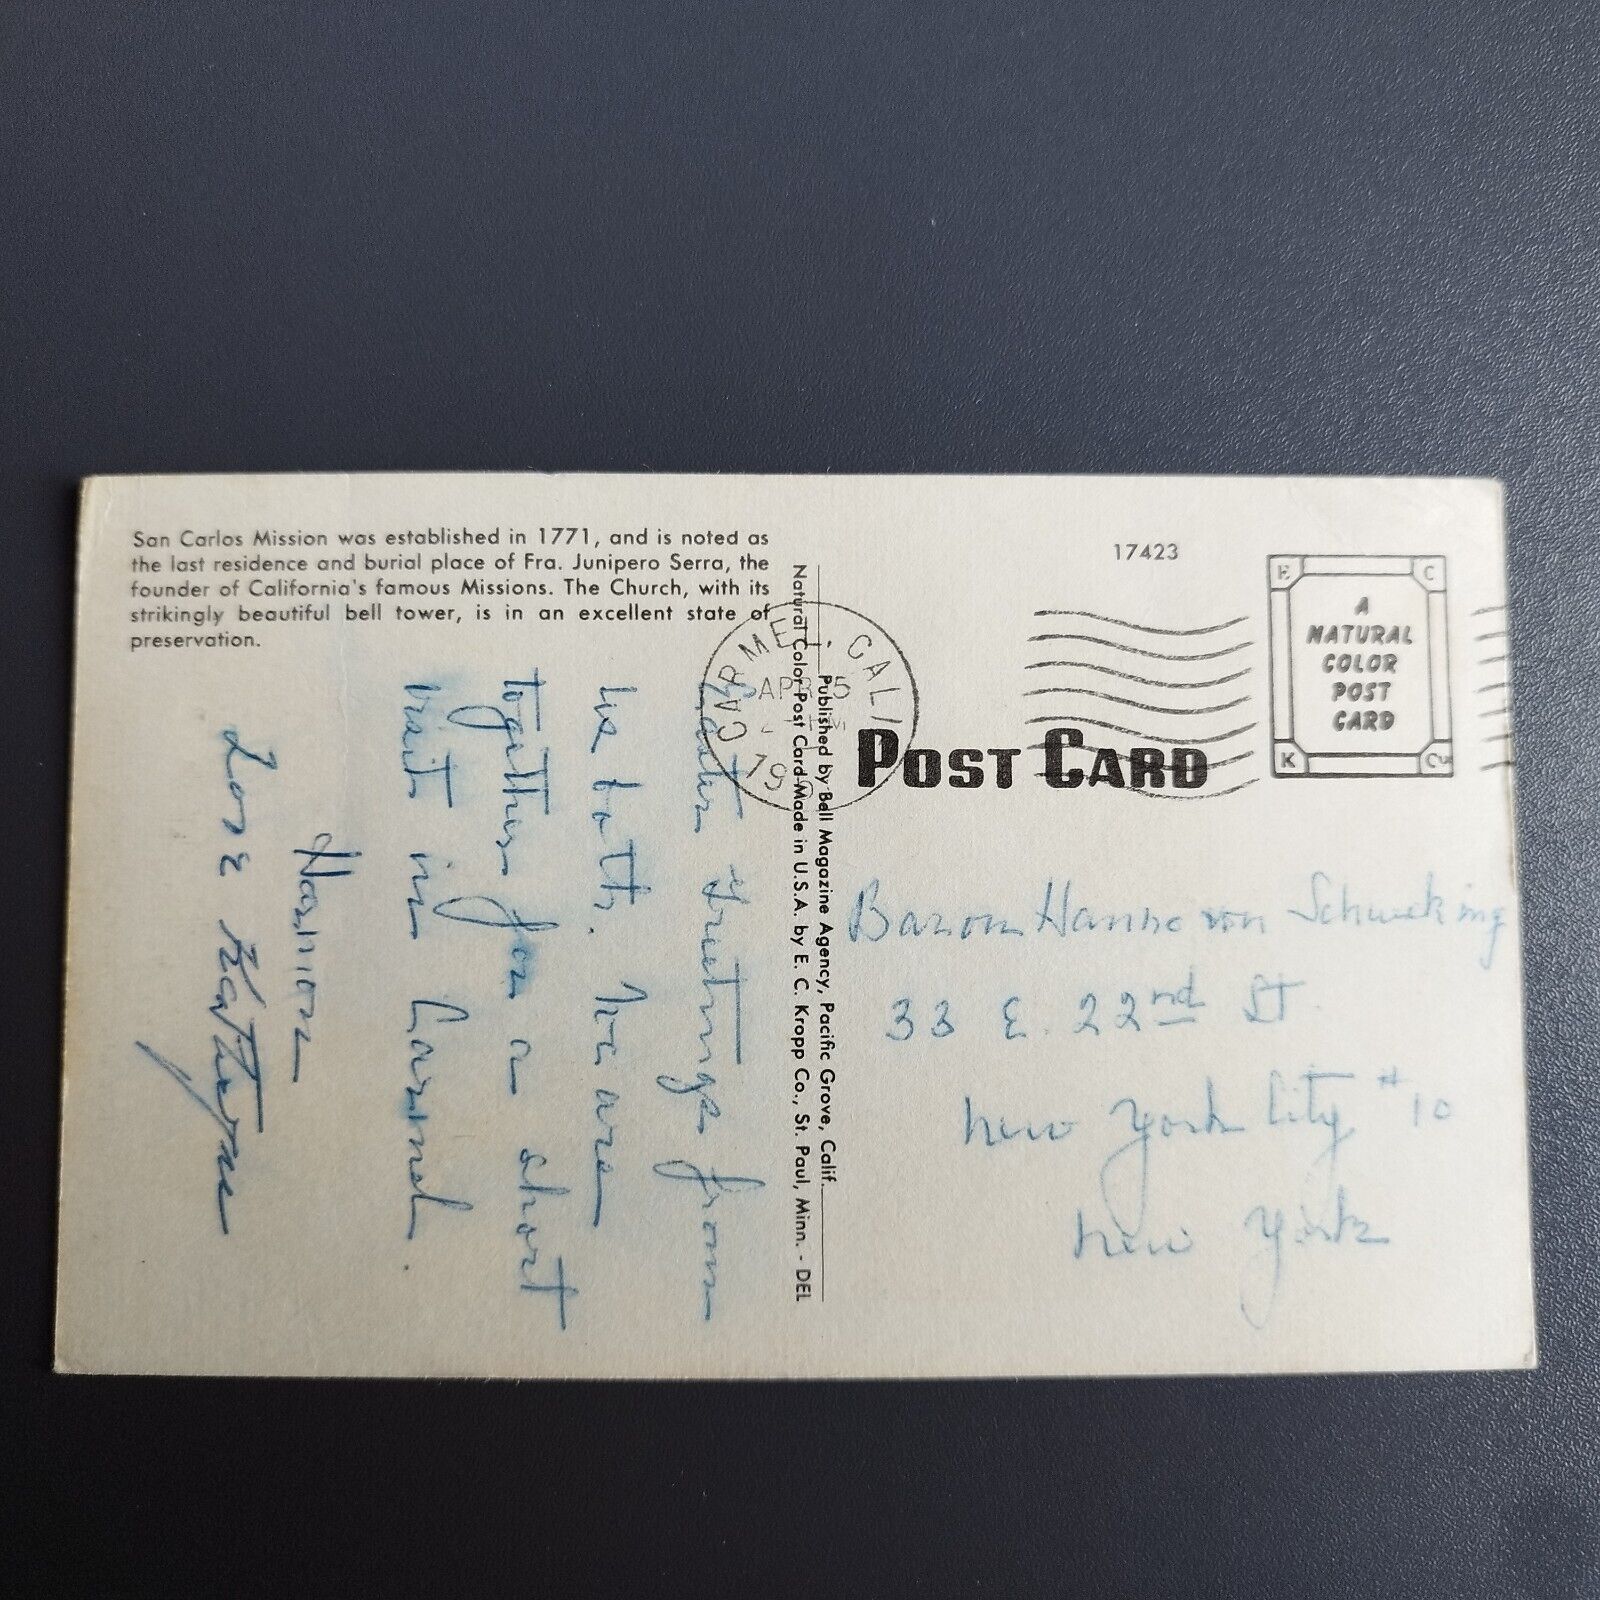 San Carlos Mission was established in 1771, and is noted as
the last residence and burial place of Fra. Junipero Serra, the
founder of California's famous Missions. The Church, with its
strikingly beautiful bell tower, is in an excellent state of
preservation.
Easter Greetings from
us both. We are
together for a short
visit in Carmel.
Harrison
Love Katheryne
Published by Bell Magazine Agency, Pacific Grove, Calif.
Natural Color Post Card-Made in U.S.A. by E. C. Kropp Co., St. Paul, Minn. - DEL
17423
CARMEL. CALIF
APR 5
PM
19
POST CARD
E C
K Co
A
NATURAL
COLOR
POST
CARD
Baron Hanno von Schucking
33 E. 22nd St.
New York City #10
New York